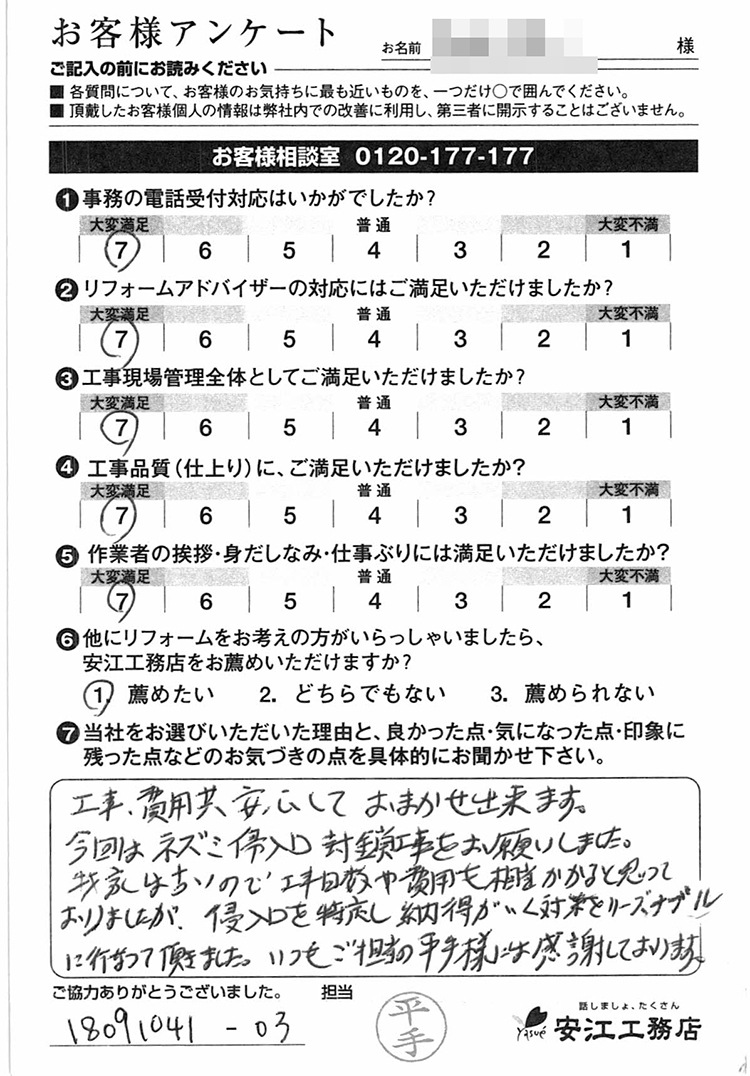 お客様アンケート
お名前 様
ご記入の前にお読みください
■ 各質問について、お客様のお気持ちに最も近いものを、一つだけ○で囲んでください。
■ 頂戴したお客様個人の情報は弊社内での改善に利用し、第三者に開示することはございません。
お客様相談室 0120-177-177
❶ 事務の電話受付対応はいかがでしたか?
大変満足 普通 大変不満
7 6 5 4 3 2 1
❷ リフォームアドバイザーの対応にはご満足いただけましたか?
大変満足 普通 大変不満
7 6 5 4 3 2 1
❸ 工事現場管理全体としてご満足いただけましたか?
大変満足 普通 大変不満
7 6 5 4 3 2 1
❹ 工事品質(仕上り)に、ご満足いただけましたか?
大変満足 普通 大変不満
7 6 5 4 3 2 1
❺ 作業者の挨拶・身だしなみ・仕事ぶりには満足いただけましたか?
大変満足 普通 大変不満
7 6 5 4 3 2 1
❻ 他にリフォームをお考えの方がいらっしゃいましたら、
安江工務店をお薦めいただけますか?
1. 薦めたい 2. どちらでもない 3. 薦められない
❼ 当社をお選びいただいた理由と、良かった点・気になった点・印象に
残った点などのお気づきの点を具体的にお聞かせ下さい。
工事、費用共、安心しておまかせ出来ます。
今回はネズミ侵入口封鎖工事をお願いしました。
我家は古いので工事日数や費用も相当かかると思って
おりましたが、侵入口を特定し納得がいく対策をリーズナブル
に行なって頂きました。いつもご担当の平手様には感謝しております。
ご協力ありがとうございました。 担当
18091041-03
平手
話しましょ、たくさん
Yasué 安江工務店